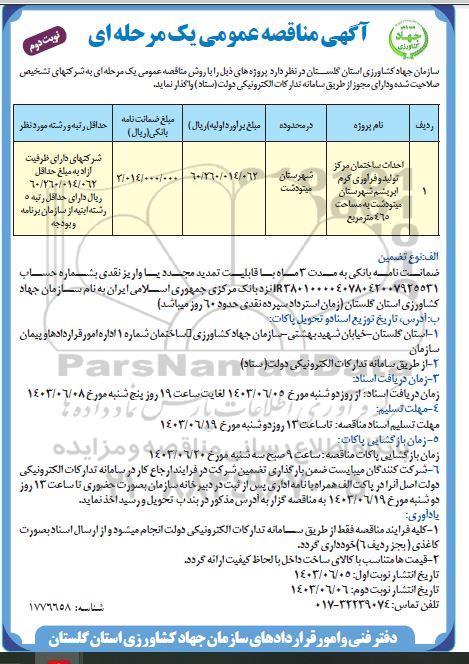 آگهی مناقصه عمومی یک مرحله ای
نوبت دوم
جهاد
کشاورزی
سازمان جهاد کشاورزی استان گلستان در نظر دارد پروژه های ذیل را با روش مناقصه عمومی یک مرحله ای به شرکتهای تشخیص
صلاحیت شده و دارای مجوز از طریق سامانه تدارکات الکترونیکی دولت (ستاد) واگذار نماید.
ردیف	نام پروژه	در محدوده	مبلغ برآورد اولیه(ریال)	مبلغ ضمانت نامه بانکی(ریال)	حداقل رتبه و رشته مورد نظر
۱	احداث ساختمان مرکز تولید و فرآوری کرم ابریشم شهرستان مینودشت به مساحت ۴۶۵ مترمربع	شهرستان مینودشت	۶۰/۲۶۰/۰۱۴/۰۶۲	۳/۰۱۴/۰۰۰/۰۰۰	شرکتهای دارای ظرفیت آزاد به مبلغ حداقل ۶۰/۲۶۰/۰۱۴/۰۶۲ ریال دارای حداقل رتبه ۵ رشته ابنیه از سازمان برنامه و بودجه
الف:نوع تضمین
ضمانت نامه بانکی به مدت ۳ ماه با قابلیت تمدید مجدد یا واریز نقدی بشماره حساب
IR۳۸۰۱۰۰۰۰۴۰۷۸۰۴۲۰۰۷۹۲۵۵۳۱ نزد بانک مرکزی جمهوری اسلامی ایران به نام سازمان جهاد
کشاورزی استان گلستان (زمان استرداد سپرده نقدی حدود ۶۰ روز میباشد)
ب: آدرس، تاریخ توزیع اسناد و تحویل پاکات:
۱-استان گلستان-خیابان شهید بهشتی-سازمان جهاد کشاورزی ساختمان شماره ۱ اداره امور قراردادها و پیمان
سازمان
۲-از طریق سامانه تدارکات الکترونیکی دولت( ستاد)
۳-زمان دریافت اسناد:
زمان دریافت اسناد: از روز دوشنبه مورخ ۱۴۰۳/۰۶/۰۵ لغایت ساعت ۱۹ روز پنج شنبه مورخ ۱۴۰۳/۰۶/۰۸
۴-مهلت تسلیم:
مهلت تسلیم اسناد مناقصه: تا ساعت ۱۳ روز دوشنبه مورخ ۱۴۰۳/۰۶/۱۹
۵-زمان بازگشایی پاکات:
زمان بازگشایی پاکات مناقصه: ساعت ۹ صبح سه شنبه مورخ ۱۴۰۳/۰۶/۲۰
۶-شرکت کنندگان میبایست ضمن بارگذاری تضمین شرکت در فرایند ارجاع کار در سامانه تدارکات الکترونیکی
دولت اصل آنرا در پاکت الف همراه با نامه اداری پس از ثبت در دبیرخانه سازمان بصورت حضوری تا ساعت ۱۳ روز
دو شنبه مورخ ۱۴۰۳/۰۶/۱۹ به مناقصه گزار به آدرس مذکور در بند ب تحویل و رسید اخذ نماید.
یادآوری:
۱-کلیه فرایند مناقصه فقط از طریق سامانه تدارکات الکترونیکی دولت انجام میشود و از ارسال اسناد بصورت
کاغذی ( بجز ردیف ۶) خودداری گردد.
۲-قیمت ها متناسب با کالای ساخت داخل با لحاظ کیفیت ارائه گردد.
تاریخ انتشار نوبت اول: ۱۴۰۳/۰۶/۰۵
تاریخ انتشار نوبت دوم: ۱۴۰۳/۰۶/۰۶
تلفن تماس: ۳۲۲۳۹۰۷۴-۰۱۷
شناسه: ۱۷۷۶۶۵۸
دفتر فنی و امور قراردادهای سازمان جهاد کشاورزی استان گلستان